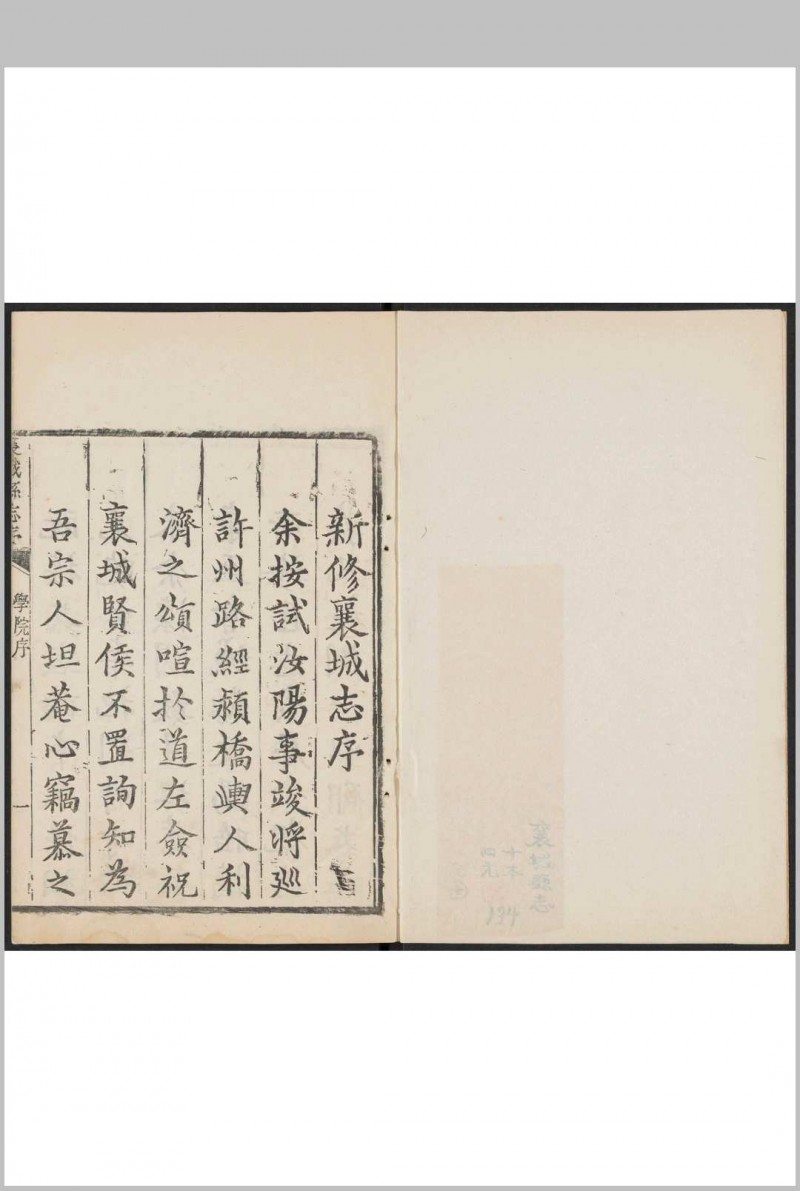 新修襄城志序
余按試汝陽事竣將廵
許州路經潁橋輿人利
濟之頌喧扵道左僉祝
襄城賢侯不置詢知為
吾宗人坦菴心竊慕之
襄城縣志序
學院序
一
襄城縣志
十本
四元
134